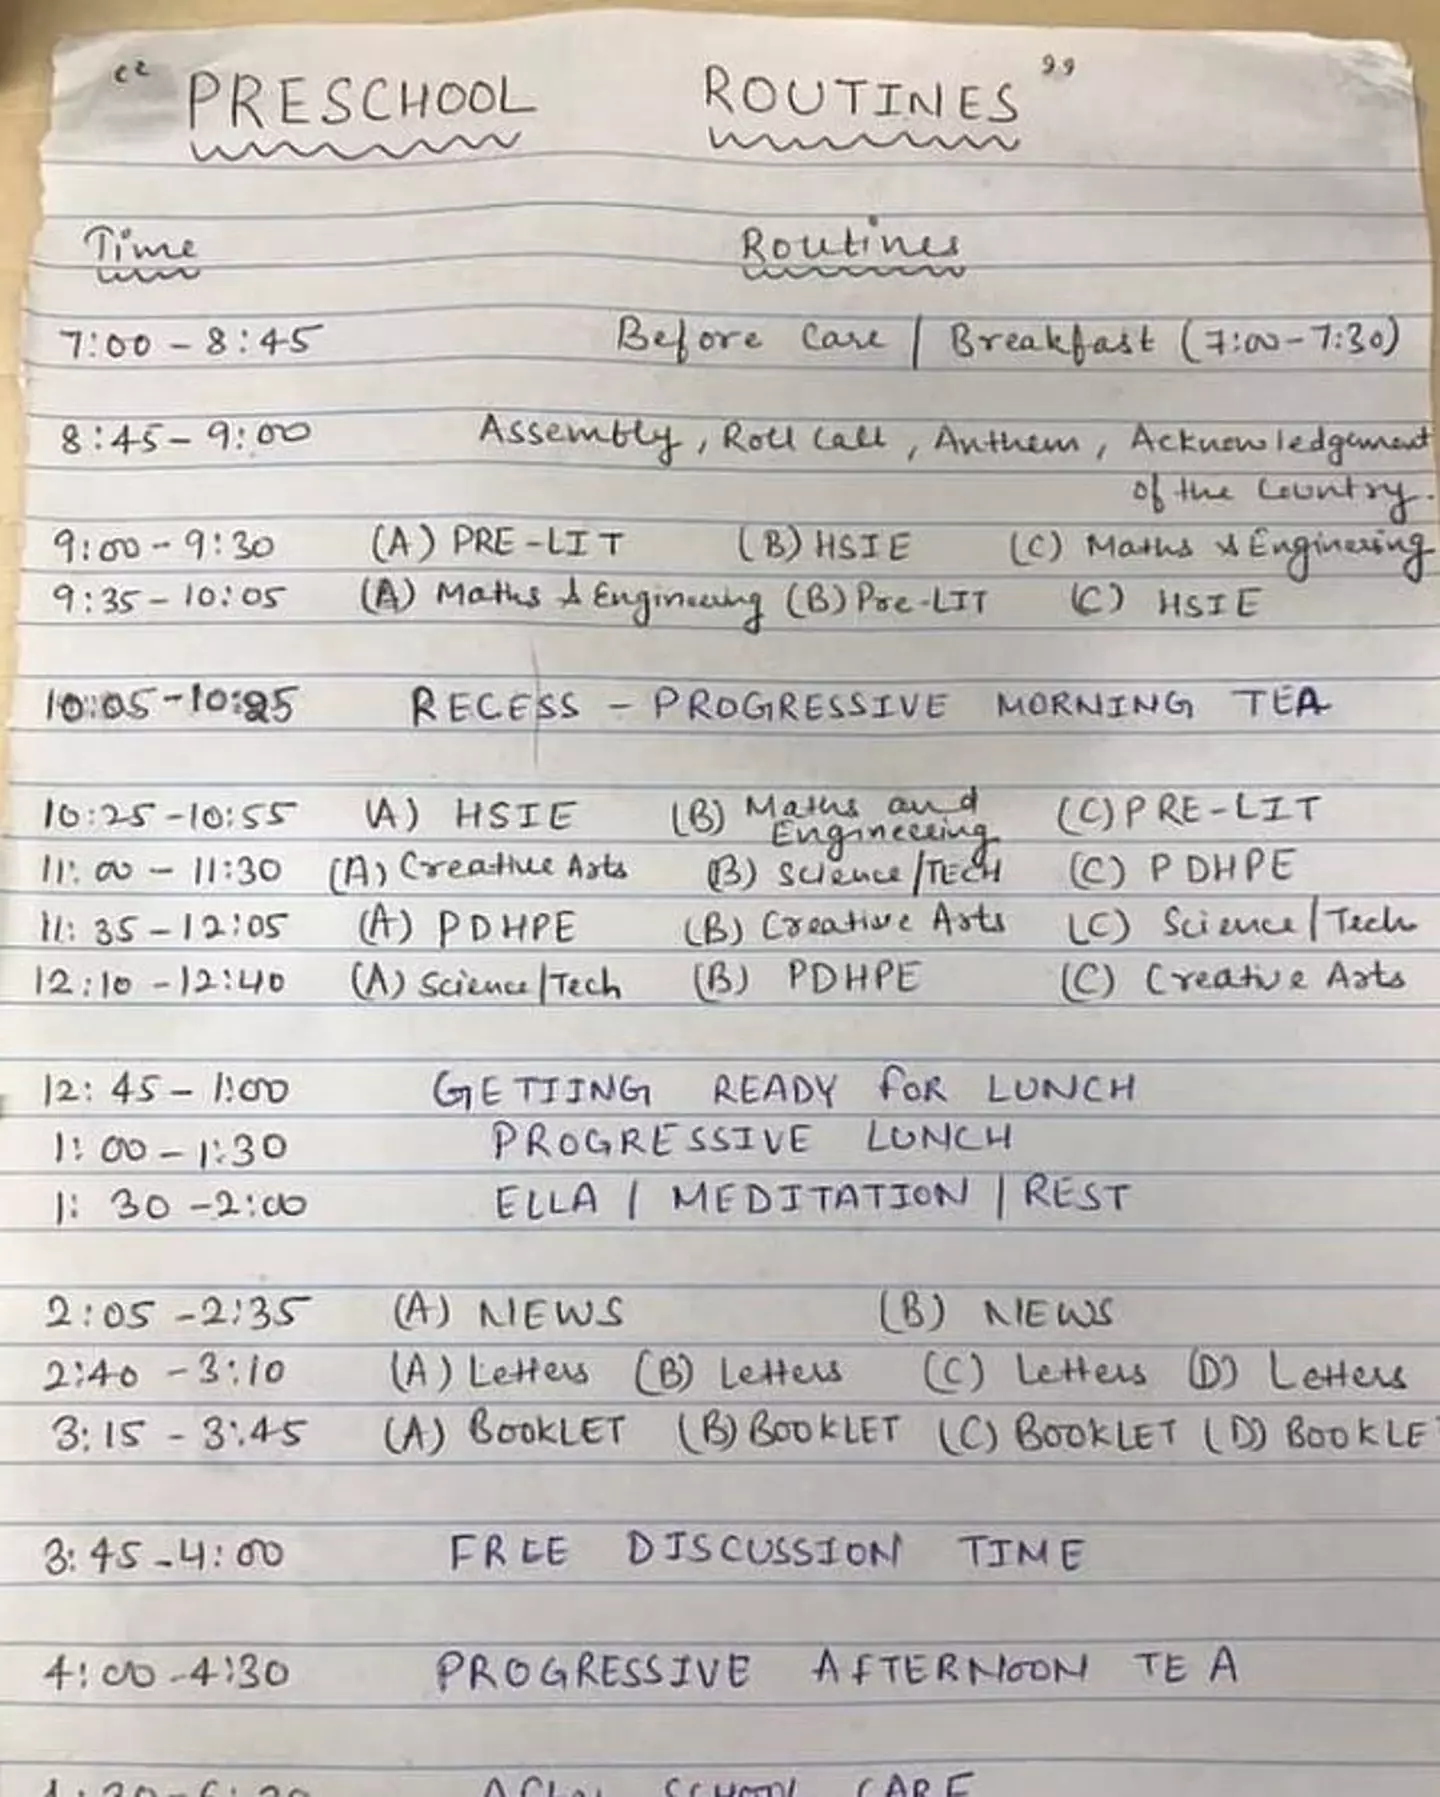 “ PRESCHOOL ROUTINES ”
Time Routines
7:00 - 8:45 Before Care / Breakfast (7:00-7:30)
8:45 - 9:00 Assembly, Roll Call, Anthem, Acknowledgement
of the Country.
9:00 - 9:30 (A) PRE-LIT (B) HSIE (C) Maths & Engineering
9:35 - 10:05 (A) Maths & Engineering (B) Pre-LIT (C) HSIE
10:05 - 10:25 RECESS - PROGRESSIVE MORNING TEA
10:25 - 10:55 (A) HSIE (B) Maths and (C) PRE-LIT
Engineering
11:00 - 11:30 (A) Creative Arts (B) Science/TECH (C) PDHPE
11:35 - 12:05 (A) PDHPE (B) Creative Arts (C) Science/Tech
12:10 - 12:40 (A) Science/Tech (B) PDHPE (C) Creative Arts
12:45 - 1:00 GETTING READY FOR LUNCH
1:00 - 1:30 PROGRESSIVE LUNCH
1:30 - 2:00 ELLA / MEDITATION / REST
2:05 - 2:35 (A) NEWS (B) NEWS
2:40 - 3:10 (A) Letters (B) Letters (C) Letters (D) Letters
3:15 - 3:45 (A) BOOKLET (B) BOOKLET (C) BOOKLET (D) BOOKLE
3:45 - 4:00 FREE DISCUSSION TIME
4:00 - 4:30 PROGRESSIVE AFTERNOON TEA
SCHOOL CARE